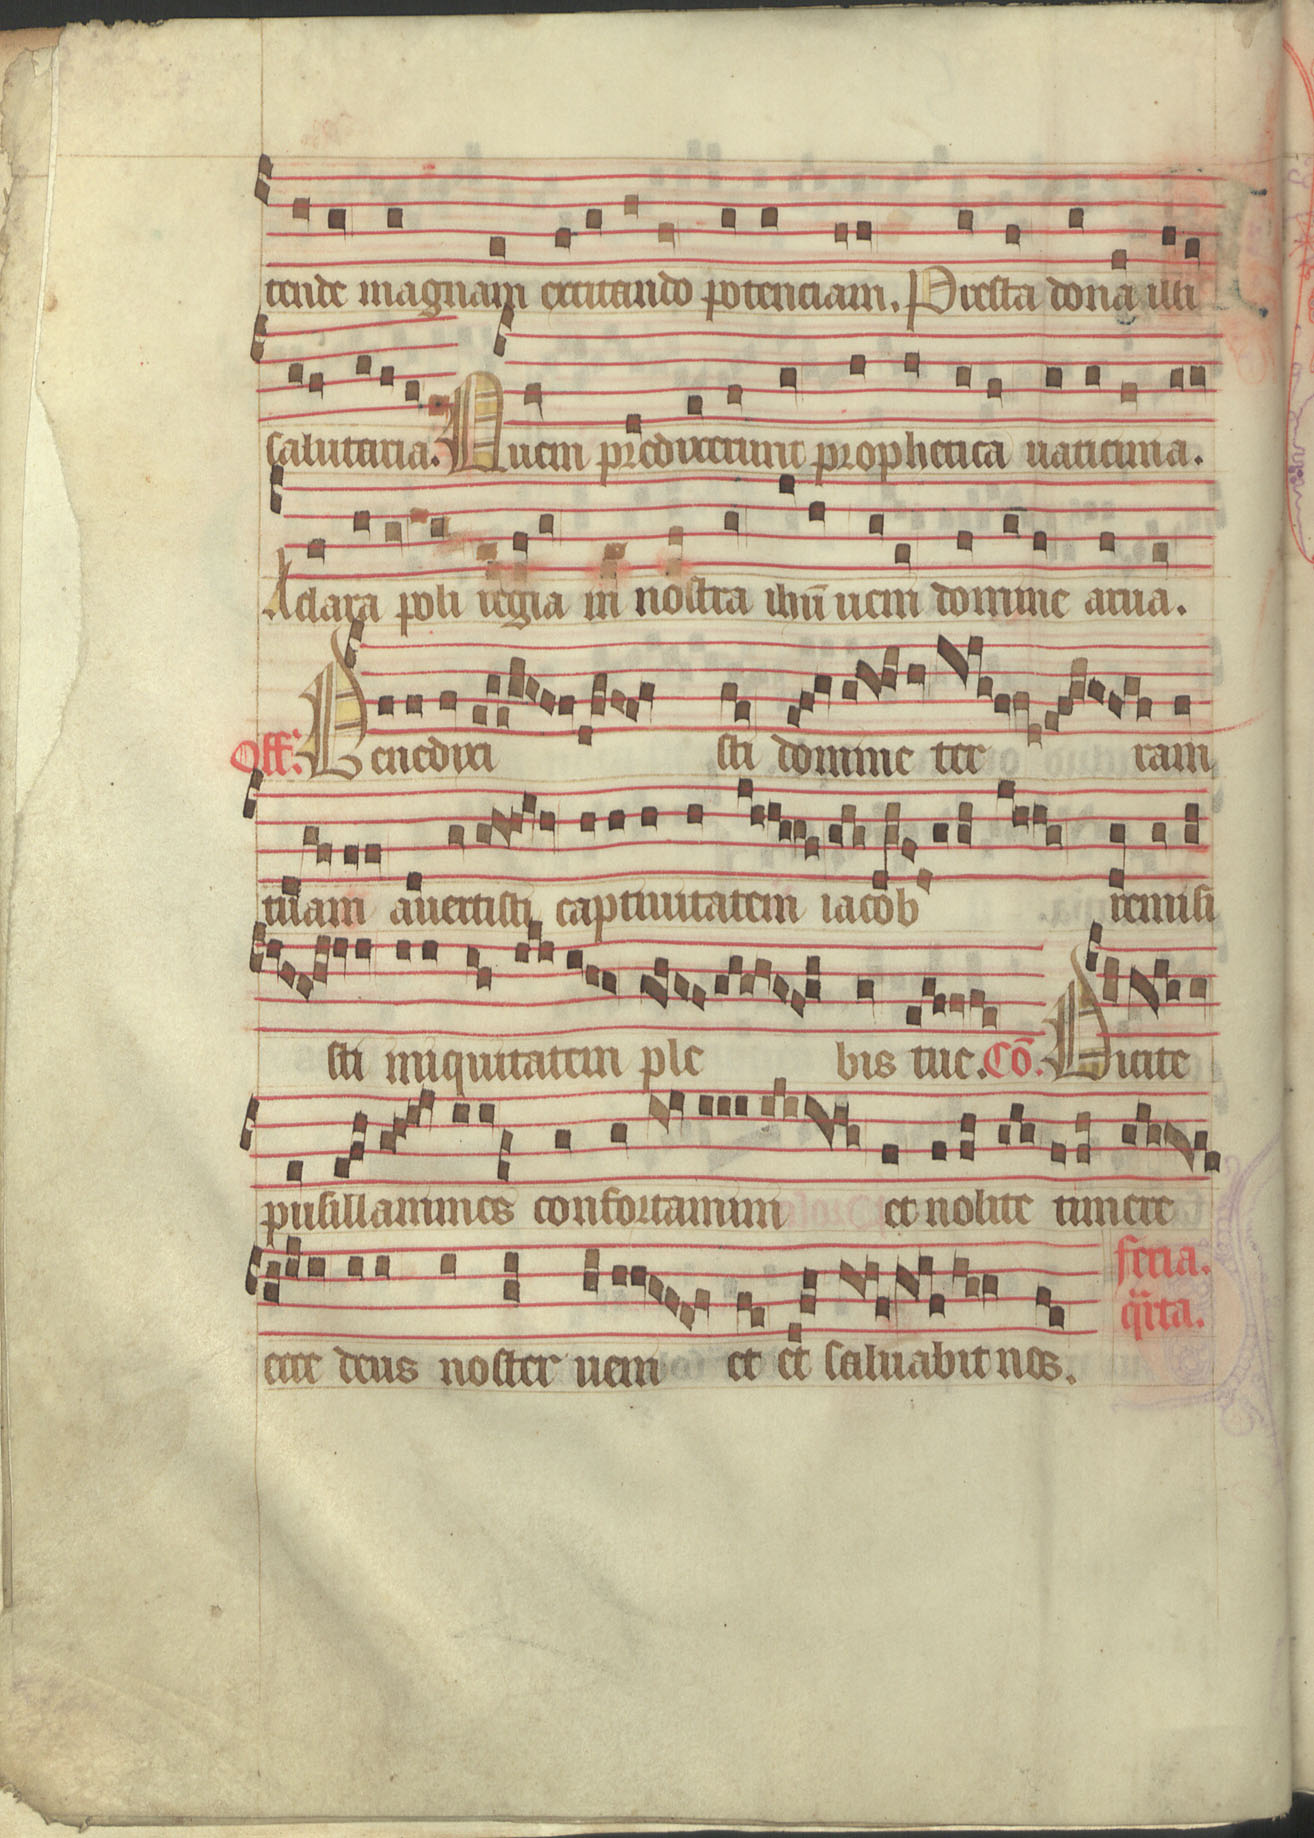 tende magnam excitando potenciam. Presta dona illi
salutaria. Quem predixerunt prophetica uaticinia.
A clara poli regia in nostra ihū ueni domine arua.
Off. Benedixi sti domine ter ram
tuam auertisti captiuitatem iacob remisi
sti iniquitatem ple bis tue. Cō. Dicite
pusillanimes confortamini et nolite timere
ecce deus noster ueni et et saluabit nos.
feria.
qrta.